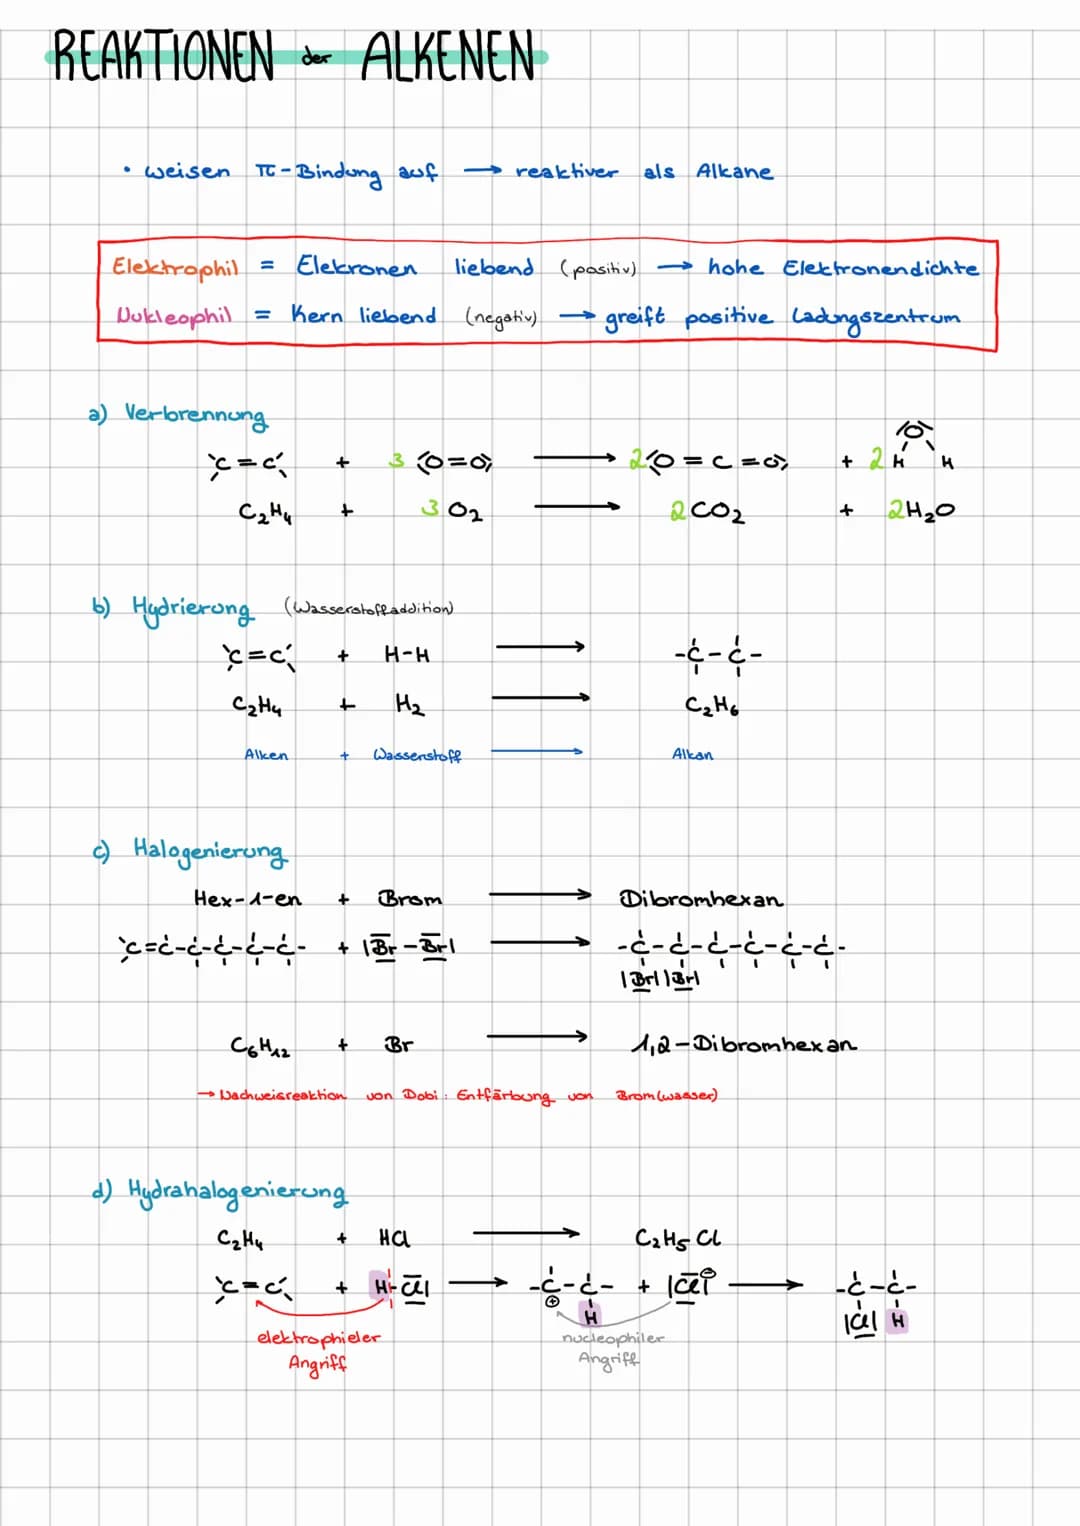 REAKTIONEN der ALKENEN
• weisen π-Bindung auf → reaktiver als Alkane
Elektrophil = Elekronen liebend (positiv) → hohe Elektronendichte
Nukleophil = Kern liebend (negativ) → greift positive Ladungszentrum
a) Verbrennung
C=C + 3 ⟨O=O⟩ → 2⟨O=C=O⟩ + 2 H O H
C₂H₄ + 3 O₂ → 2 CO₂ + 2 H₂O
b) Hydrierung (Wasserstoffaddition)
C=C + H-H → -C-C-
C₂H₄ + H₂ → C₂H₆
Alken + Wasserstoff → Alkan
c) Halogenierung
Hex-1-en + Brom → Dibromhexan
C=C-C-C-C-C- + |Br-Br| → -C-C-C-C-C-C-
|Br| |Br|
C₆H₁₂ + Br → 1,2-Dibromhexan
→ Nachweisreaktion von Dobi: Entfärbung von Brom(wasser)
d) Hydrahalogenierung
C₂H₄ + HCl → C₂H₅Cl
C=C + H-Cl| → -C-C- + |Cl|⊖ → -C-C-
⊕ H |Cl| H
elektrophieler nucleophiler
Angriff Angriff